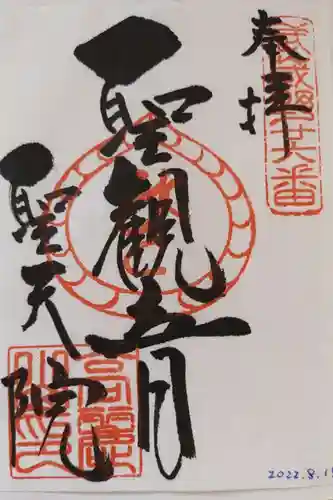 奉拝
聖観音
聖天院
2022.8.19